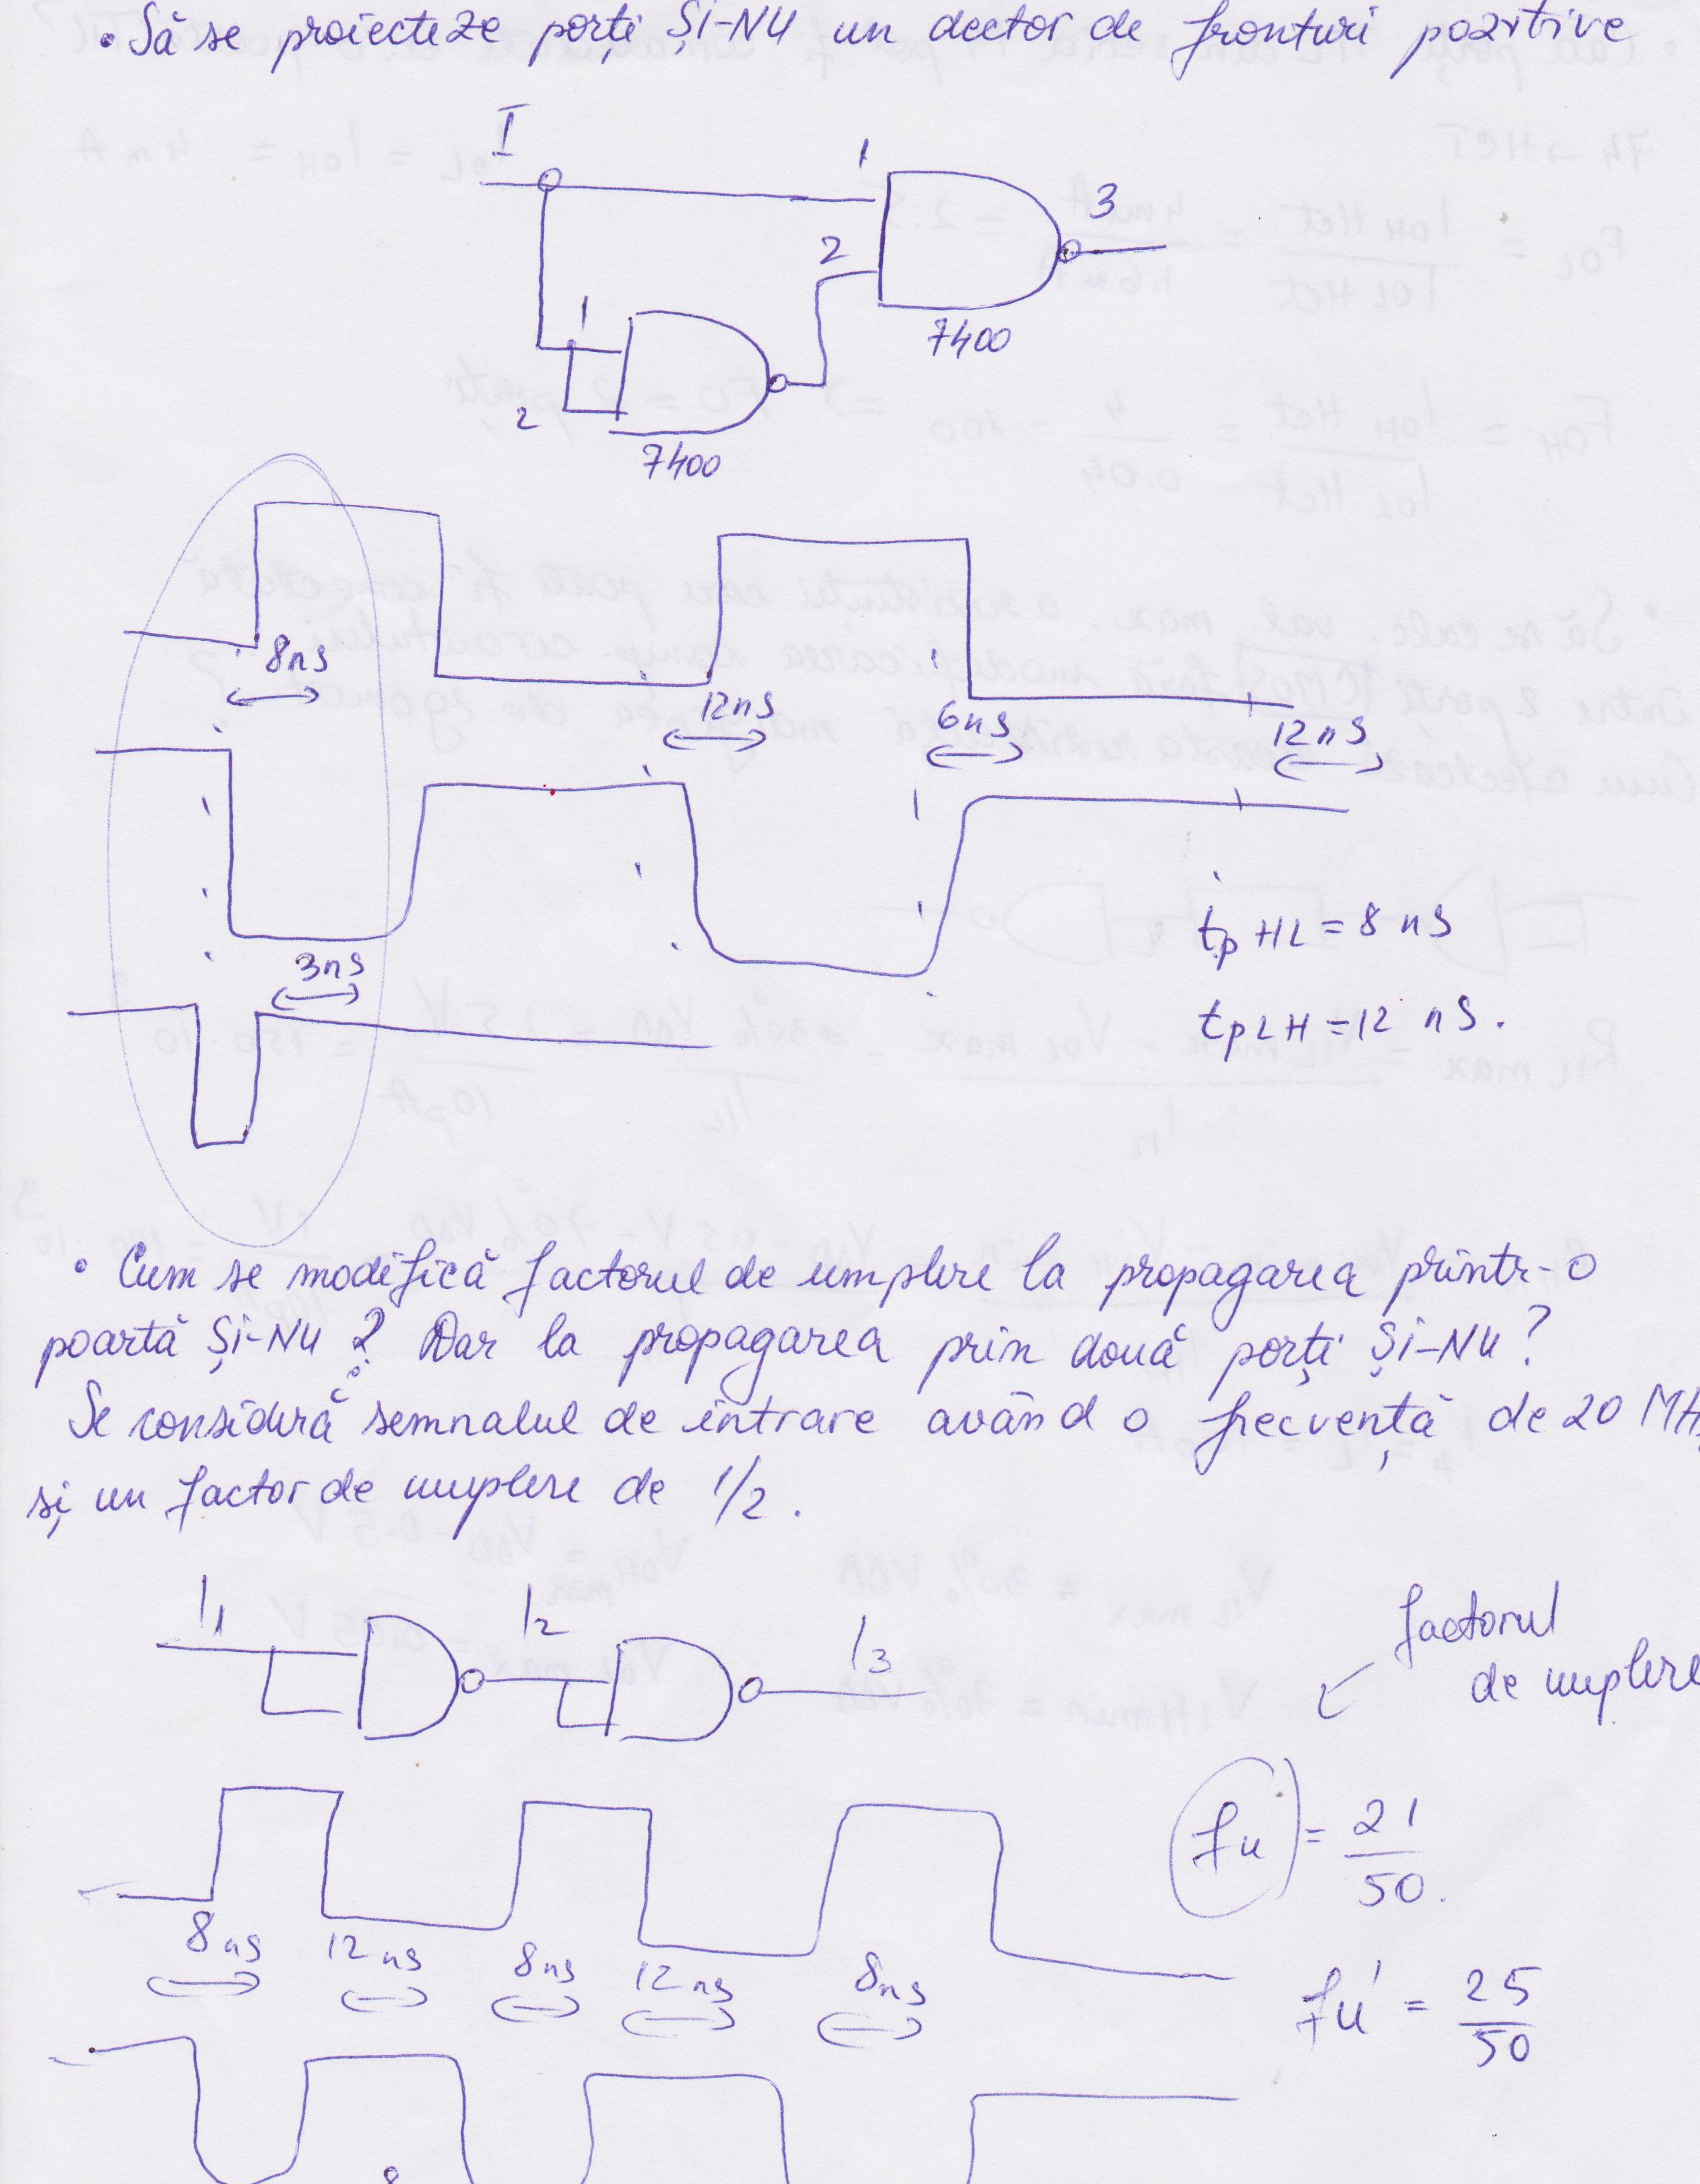 • Să se proiecteze porți ȘI-NU un dector de fronturi pozitive
I
1
3
2
1
7400
2
7400
8ns
12ns
6ns
12ns
tpHL = 8 ns
3ns
tpLH = 12 ns.
• Cum se modifică factorul de umplere la propagarea printr-o
poartă ȘI-NU? Dar la propagarea prin două porți ȘI-NU?
Se consideră semnalul de intrare având o frecvență de 20 MHz
și un factor de umplere de 1/2.
I1
I2
I3
factorul
de umplere
fu = 21/50.
8ns
12ns
8ns
12ns
8ns
fu' = 25/50
8